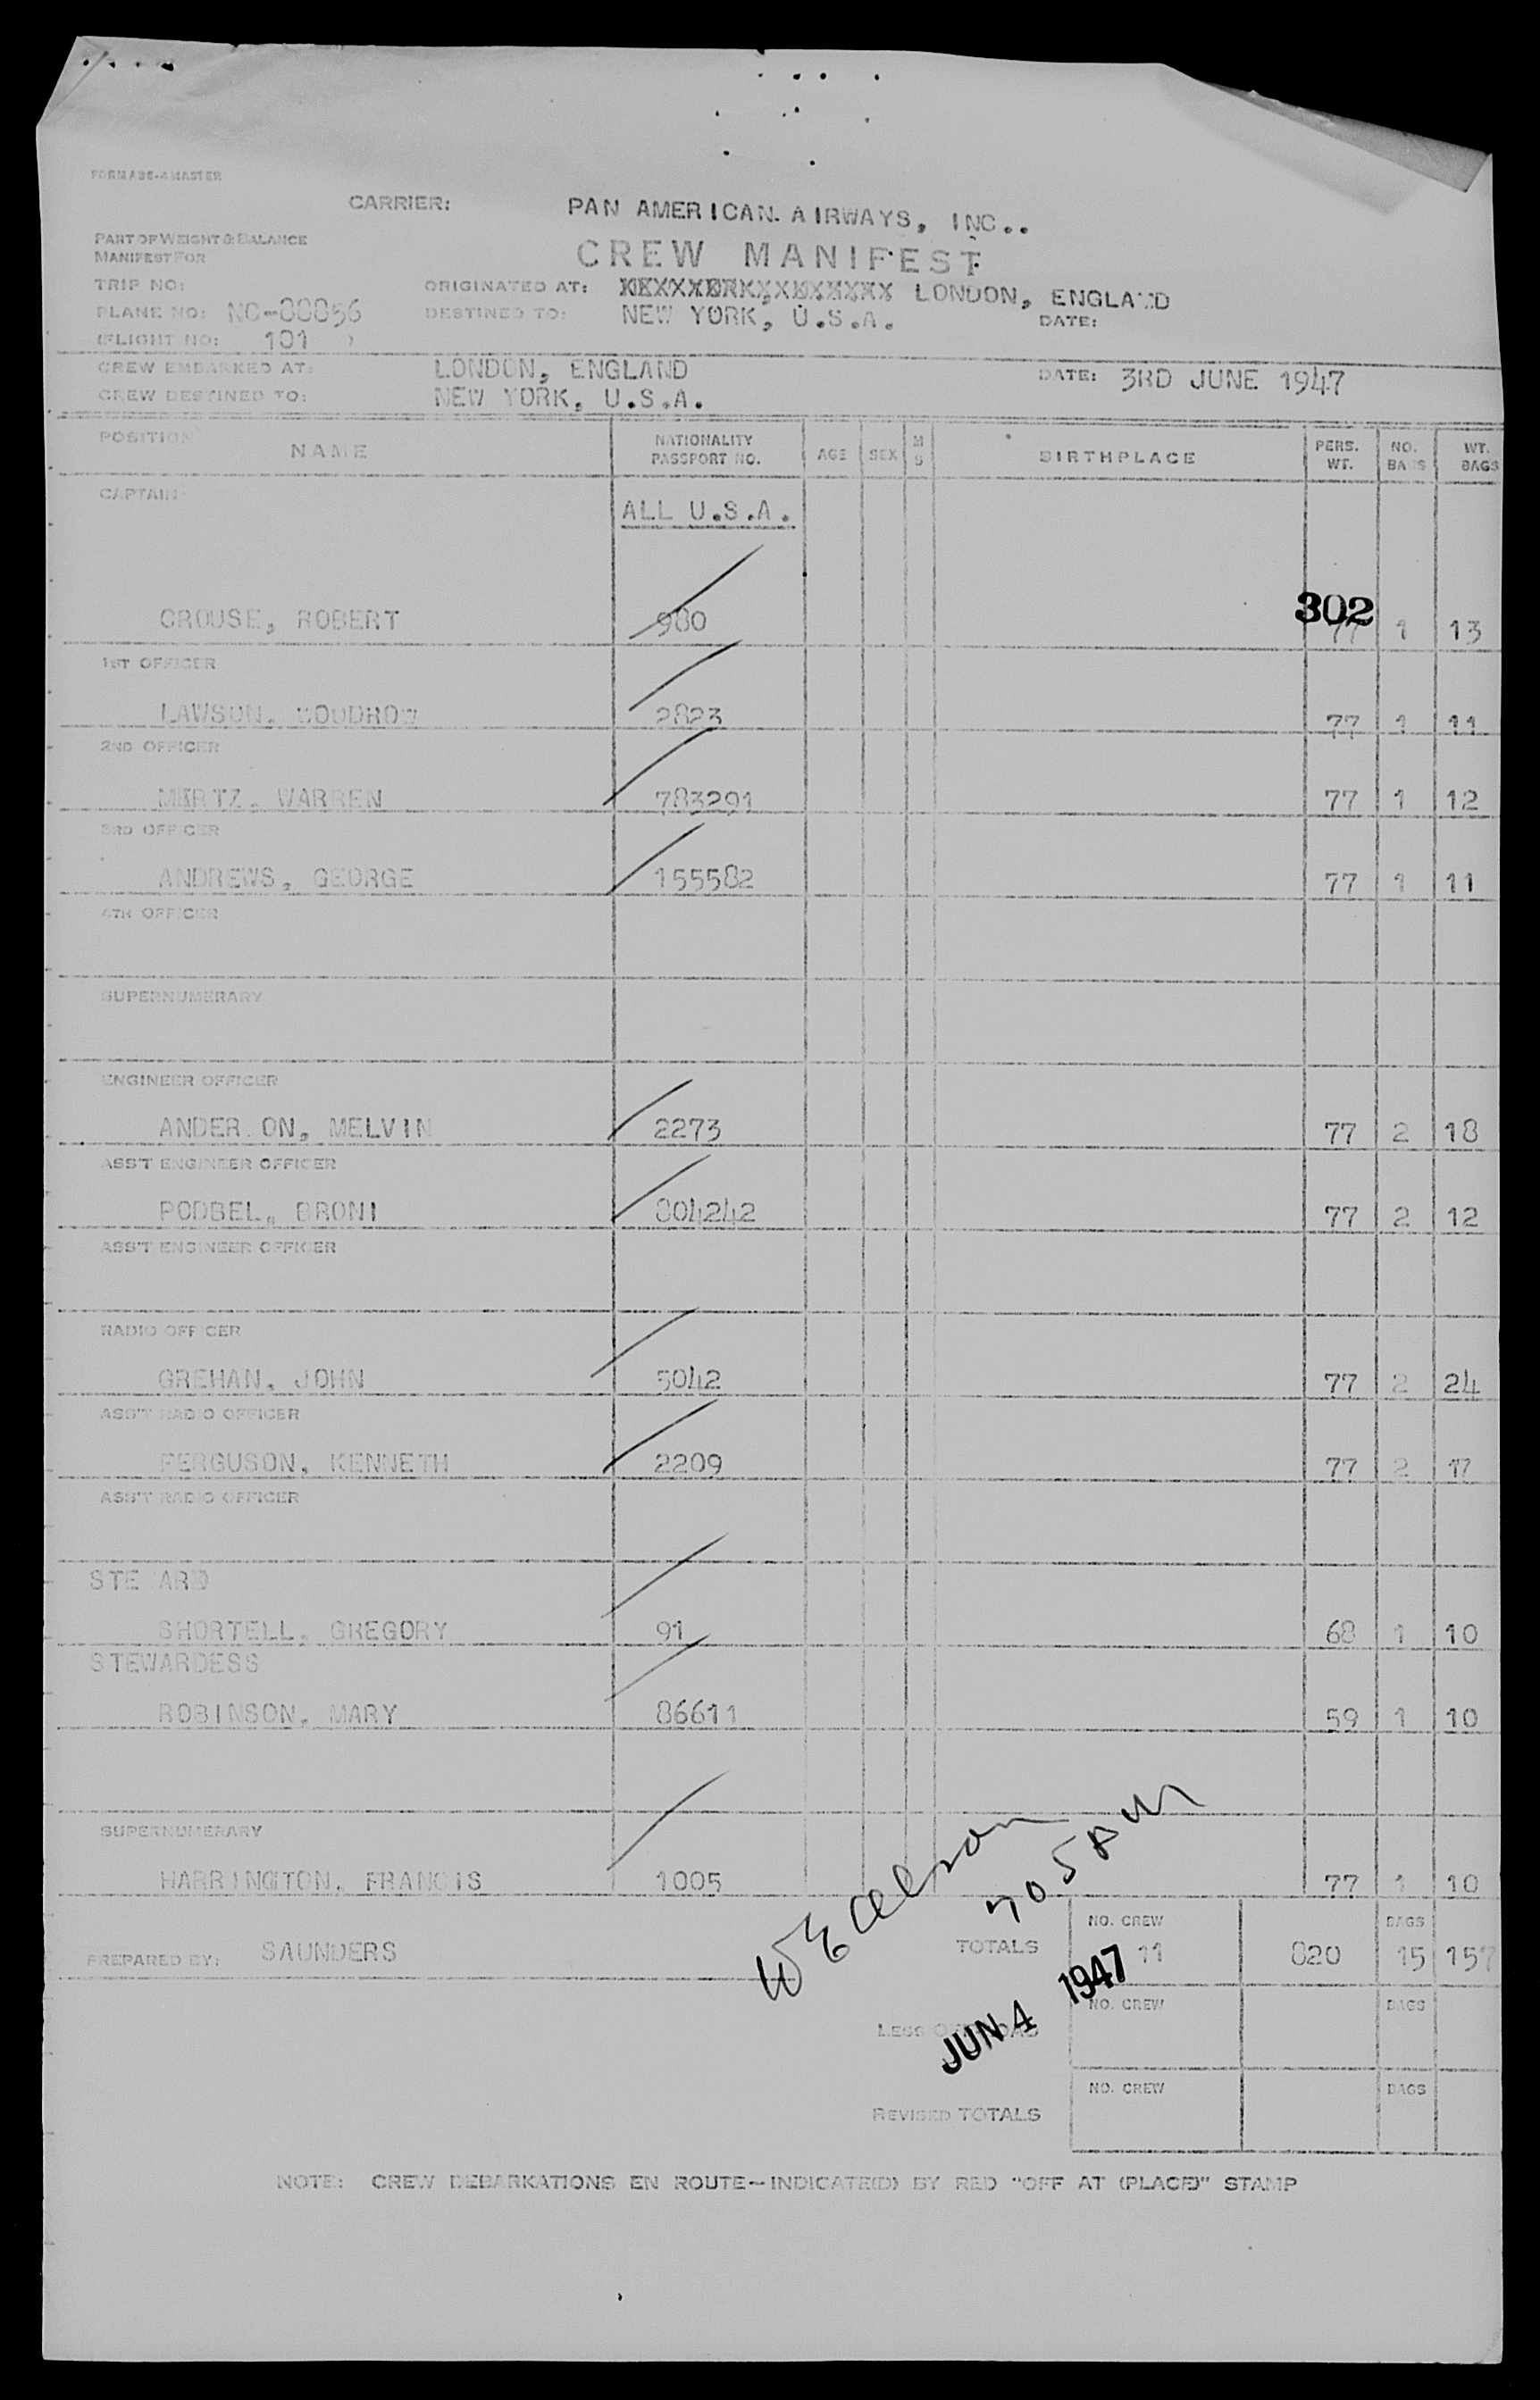 CARRIER: PAN AMERICAN AIRWAYS, INC..
PART OF WEIGHT & BALANCE
MANIFEST FOR
CREW MANIFEST
TRIP NO:
ORIGINATED AT: LONDON, ENGLAND
PLANE NO: NC-88856
DESTINED TO: NEW YORK, U.S.A. DATE:
(FLIGHT NO: 101 )
CREW EMBARKED AT: LONDON, ENGLAND DATE: 3RD JUNE 1947
CREW DESTINED TO: NEW YORK, U.S.A.
POSITION NAME NATIONALITY PASSPORT NO. AGE SEX M S BIRTHPLACE PERS. WT. NO. BAGS WT. BAGS
CAPTAIN
ALL U.S.A.
302
CROUSE, ROBERT 980 77 1 13
1ST OFFICER
LAWSON, WOODROW 2823 77 1 11
2ND OFFICER
MERTZ, WARREN 783291 77 1 12
3RD OFFICER
ANDREWS, GEORGE 155582 77 1 11
4TH OFFICER
SUPERNUMERARY
ENGINEER OFFICER
ANDER ON, MELVIN 2273 77 2 18
ASS'T ENGINEER OFFICER
PODBEL, BRONI 804242 77 2 12
ASS'T ENGINEER OFFICER
RADIO OFFICER
GREHAN, JOHN 5042 77 2 24
ASS'T RADIO OFFICER
FERGUSON, KENNETH 2209 77 2 17
ASS'T RADIO OFFICER
STE ARD
SHORTELL, GREGORY 91 68 1 10
STEWARDESS
ROBINSON, MARY 86611 59 1 10
SUPERNUMERARY
HARRINGTON, FRANCIS 1005 77 1 10
705 PM
PREPARED BY: SAUNDERS
TOTALS NO. CREW 11 820 BAGS 15 157
JUN 4 1947
NO. CREW BAGS
REVISED TOTALS NO. CREW BAGS
NOTE: CREW DEBARKATIONS EN ROUTE—INDICATE(D) BY RED "OFF AT (PLACE)" STAMP